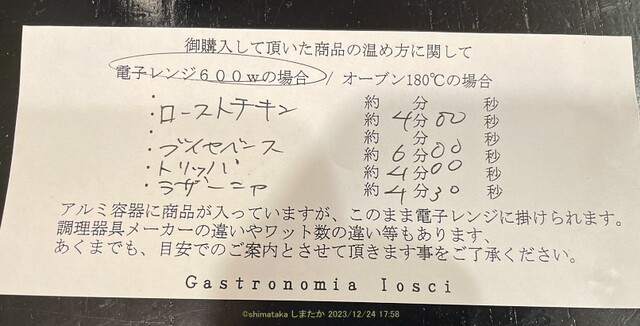 御購入して頂いた商品の温め方に関して
電子レンジ600wの場合 / オーブン180℃の場合
・ 約 分 秒
・ローストチキン 約 4分 00 秒
・ 約 分 秒
・ブイヤベース 約 6分 00 秒
・トリッパ 約 4分 00 秒
・ラザーニア 約 4分 30 秒
アルミ容器に商品が入っていますが、このまま電子レンジに掛けられます。
調理器具メーカーの違いやワット数の違い等もあります、
あくまでも、目安でのご案内とさせて頂きます事をご了承ください。
Gastronomia Iosci
©shimataka しまたか 2023/12/24 17:58